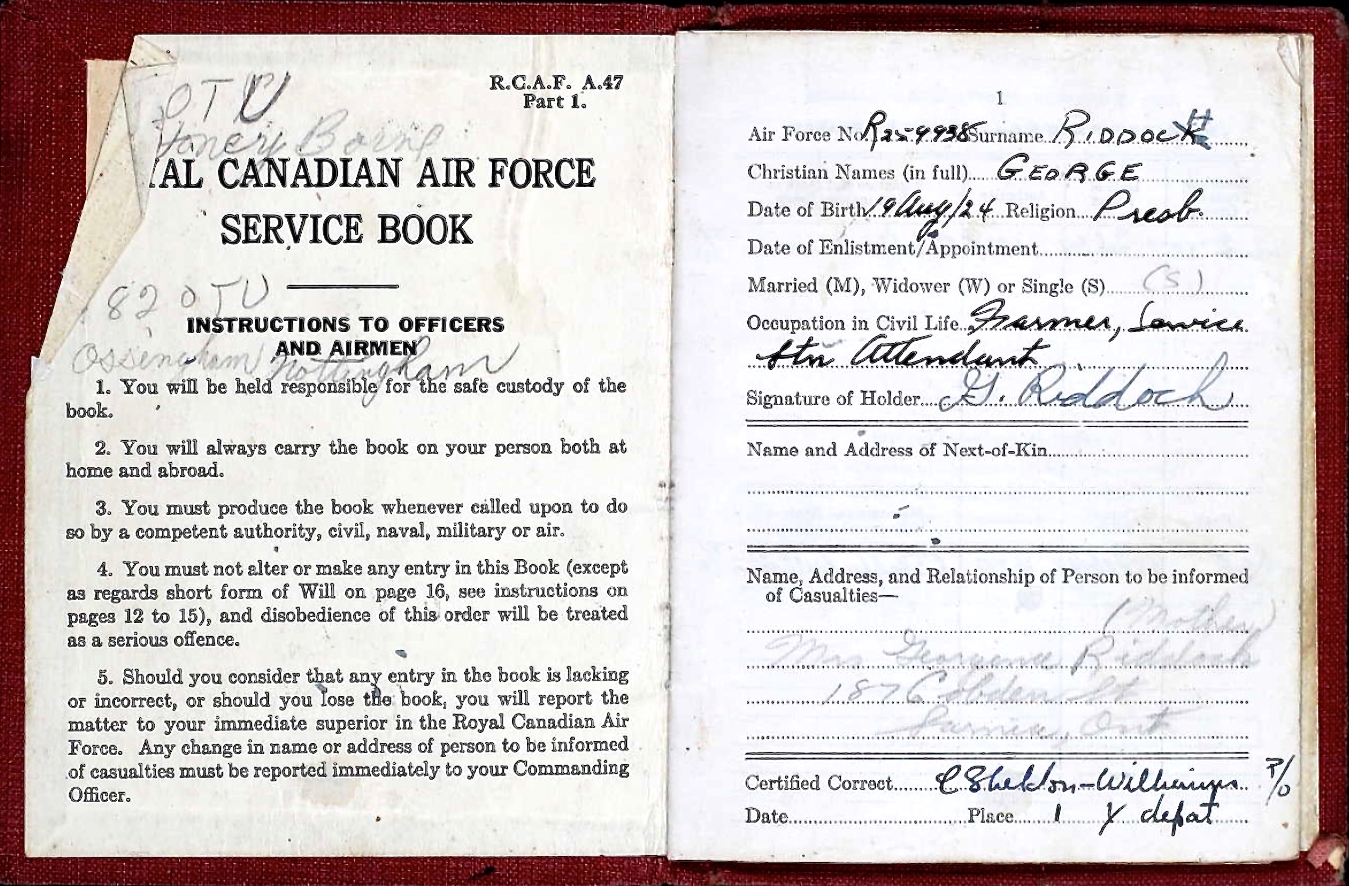 R.C.A.F. A.47
Part 1.
OTU
Honey Borne
AL CANADIAN AIR FORCE
SERVICE BOOK
82 OTU
INSTRUCTIONS TO OFFICERS
AND AIRMEN
Ossingham Nottingham
1. You will be held responsible for the safe custody of the
book.
2. You will always carry the book on your person both at
home and abroad.
3. You must produce the book whenever called upon to do
so by a competent authority, civil, naval, military or air.
4. You must not alter or make any entry in this Book (except
as regards short form of Will on page 16, see instructions on
pages 12 to 15), and disobedience of this order will be treated
as a serious offence.
5. Should you consider that any entry in the book is lacking
or incorrect, or should you lose the book, you will report the
matter to your immediate superior in the Royal Canadian Air
Force. Any change in name or address of person to be informed
of casualties must be reported immediately to your Commanding
Officer.
1
Air Force No. R259938 Surname RIDDOCH
Christian Names (in full) GEORGE
Date of Birth 19 Aug/24 Religion Presb.
Date of Enlistment/Appointment
Married (M), Widower (W) or Single (S) (S)
Occupation in Civil Life Farmer, Service
Stn Attendant
Signature of Holder G. Riddoch
Name and Address of Next-of-Kin
Name, Address, and Relationship of Person to be informed
of Casualties—
(Mother)
Mrs Riddoch
187 Cobden St
Sarnia, Ont
Certified Correct C Sheldon-Williams P/O
Date Place 1 Y depot